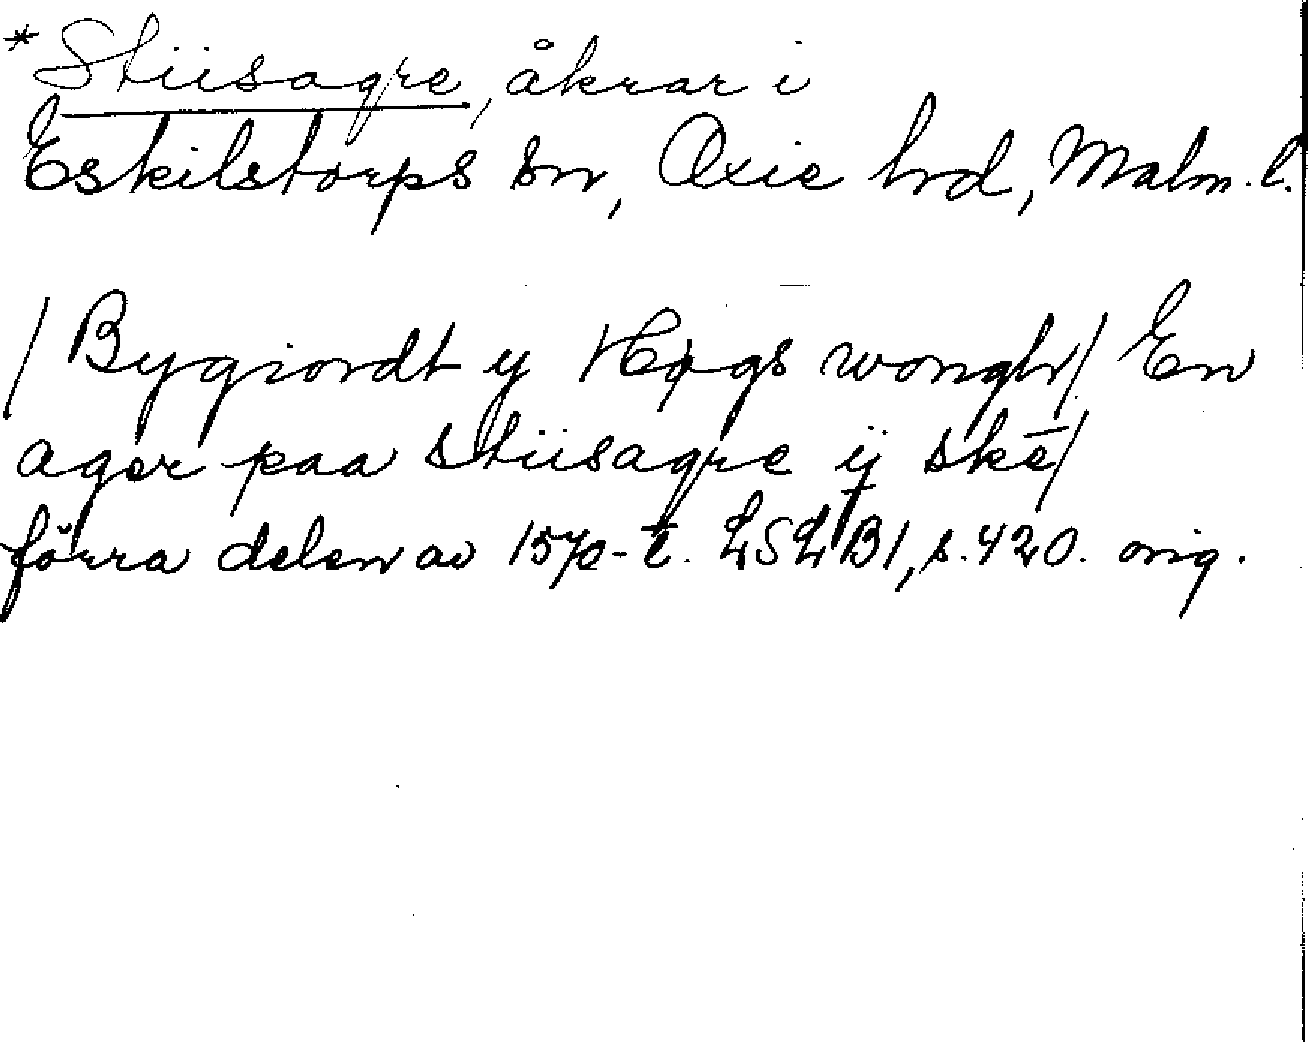 * Stiisagre, åkrar i
Eskilstorps sn, Oxie hrd, Malm. l.
/ Bygiordt y Høgs wongh / En
ager paa stiisagre ÿ skē /
förra delen av 1570-t. LSLB1, s. 420. orig.